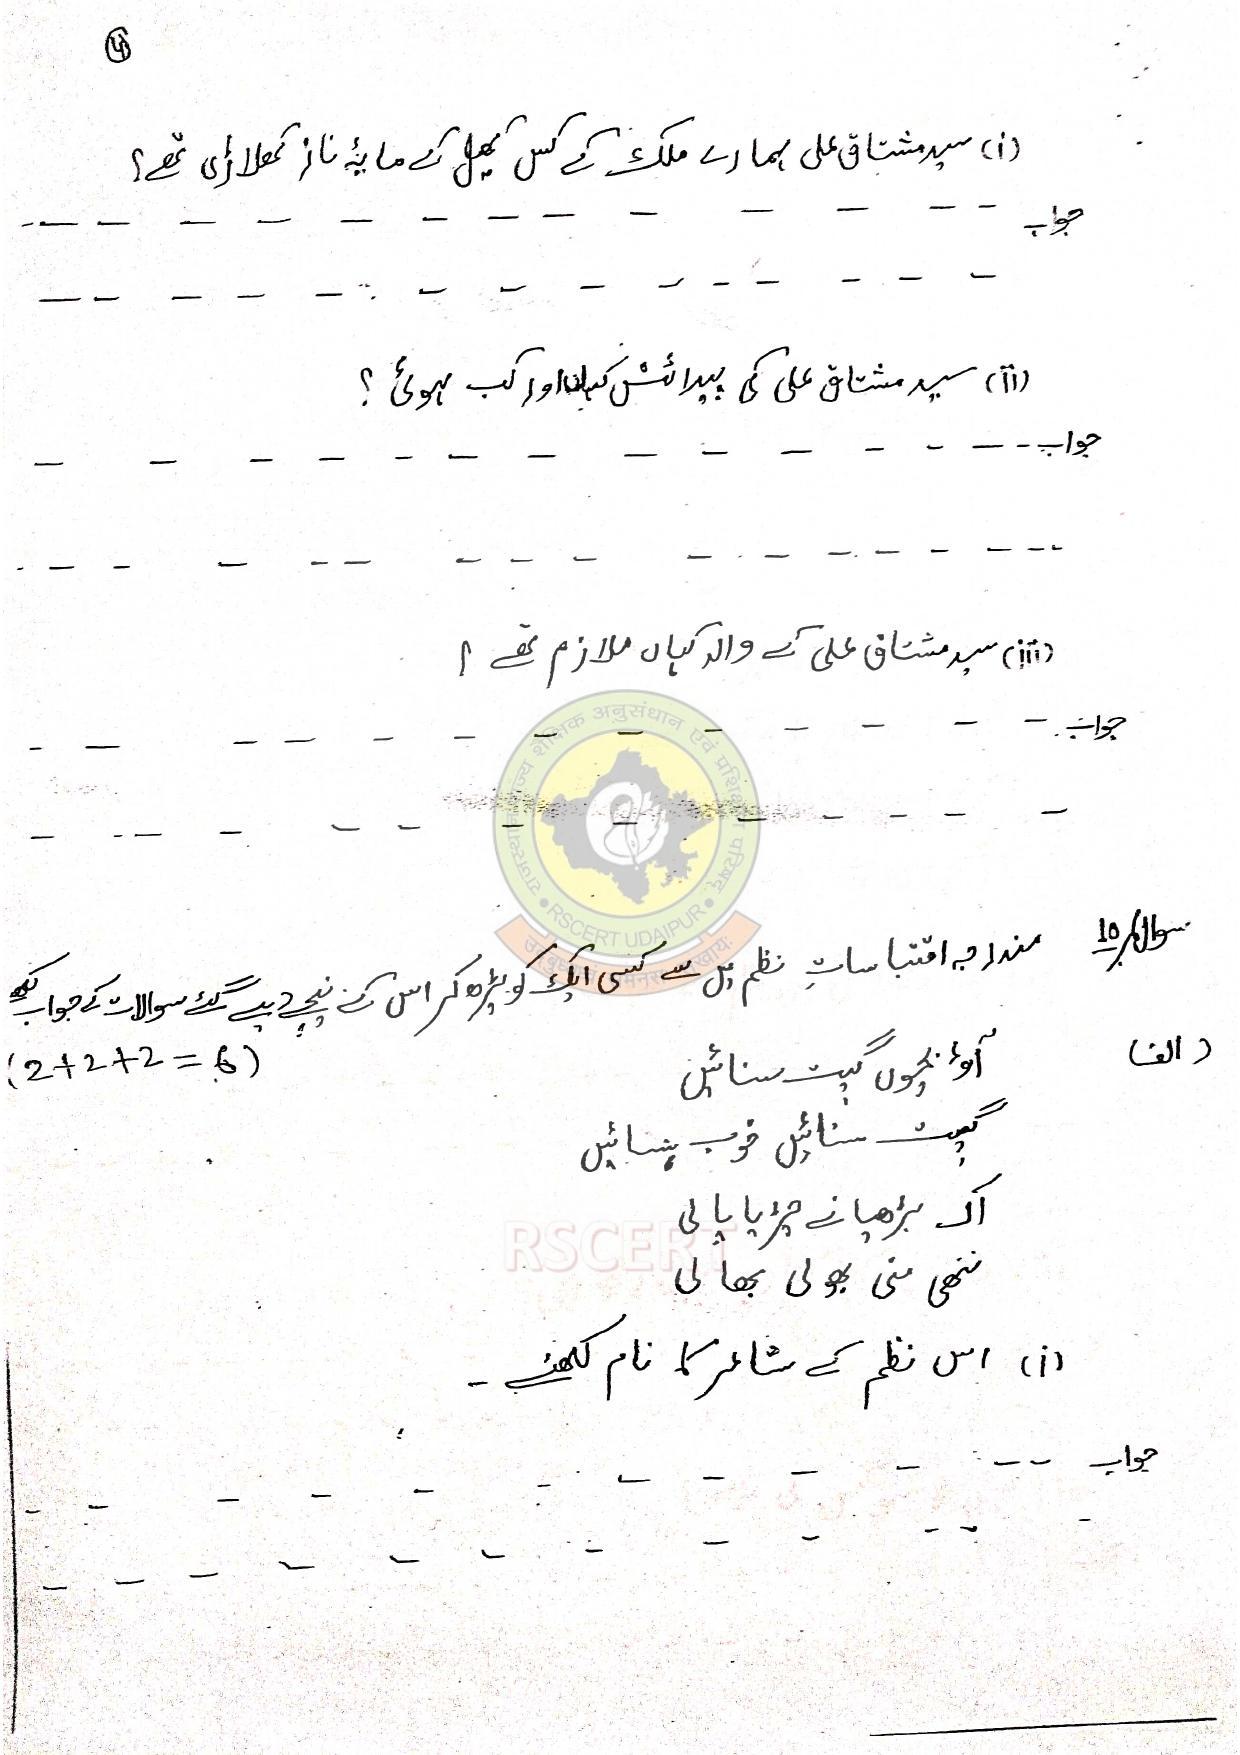 ۵
(i) سید مشتاق علی ہمارے ملک کے کس کھیل کے مایۂ ناز کھلاڑی تھے؟
جواب
(ii) سید مشتاق علی کی پیدائش کہاں اور کب ہوئی ؟
جواب
(iii) سید مشتاق علی کے والد کہاں ملازم تھے ؟
جواب
राजस्थान राज्य शैक्षिक अनुसंधान एवं प्रशिक्षण परिषद्
RSCERT UDAIPUR
سوال نمبر 10 مندرجہ اقتباساتِ نظم میں سے کسی ایک کو پڑھ کر اس کے نیچے دیے گئے سوالات کے جواب لکھئے
(2+2+2=6)
(الف) آؤ بچوں گیت سنائیں
گیت سنائیں خوب ہنسائیں
اک بڑھیا نے چڑیا پالی
ننھی منی بھولی بھالی
RSCERT
(i) اس نظم کے شاعر کا نام لکھئے ۔
جواب